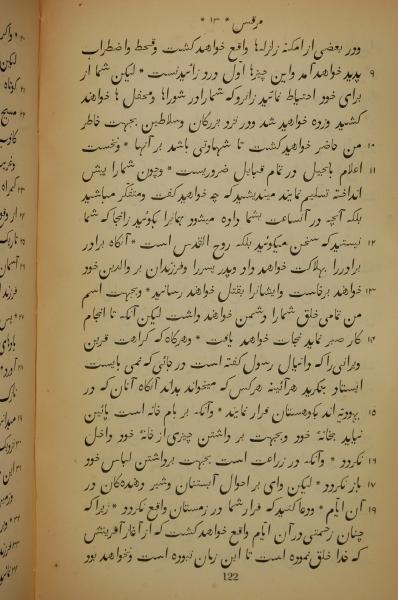 مرقس * ۱۳ *
ودر بعضی از امکنه زلزله‌ها واقع خواهد گشت و قحط و اضطراب
پدید خواهد آمد و این چیزها اوّل درد زائیدنست * لیکن شما از ۹
برای خود احتیاط نمائید زانرو که شما را در شوراها و محفل‌ها خواهند
کشید و زده خواهید شد و در نزد بزرگان و سلاطین بجهت خاطر
من حاضر خواهید گشت تا شهادتی باشد بر آنها * و نخست ۱۰
اعلام بانجیل در تمام قبایل ضروریست * و چون شما را پیش ۱۱
انداخته تسلیم نمایند میندیشید که چه خواهید گفت و متفکّر مباشید
بلکه آنچه در آنساعت بشما داده میشود همانرا بگوئید زانجا که شما
نیستید که سخن میگوئید بلکه روح القدس است * آنگاه برادر ۱۲
برادر را بهلاکت خواهد داد و پدر پسر را و فرزندان بر والدین خود
خواهند برخاست و ایشانرا بقتل خواهند رسانید * و بجهت اسم ۱۳
من تمامی خلق شما را دشمن خواهند داشت لیکن آنکه تا انجام
کار صبر نماید نجات خواهد یافت * و هرگاه که کراهت قرین ۱۴
ویرانی را که دانیال رسول گفته است در جائی که نمی بایست
ایستاد بنگرید هر آئینه هر کس که میخواند بداند آنگاه آنان که در
یهودیّه اند بکوهستان فرار نمایند * و آنکه بر بام خانه است پائین ۱۵
نیاید بخانهٔ خود و بجهت بر داشتن چیزی از خانهٔ خود داخل
نگردد * و آنکه در زراعت است بجهت برداشتن لباس خود ۱۶
باز نگردد * لیکن وای بر احوال آبستنان و شیر دهندگان در ۱۷
آن ایّام * و دعا کنید که فرار شما در زمستان واقع نگردد * زیرا که ۱۹
چنان زحمتی در آن ایّام واقع خواهد گشت که از آغاز آفرینش
که خدا خلق نموده است تا این زمان نبوده است و نخواهد بود
122